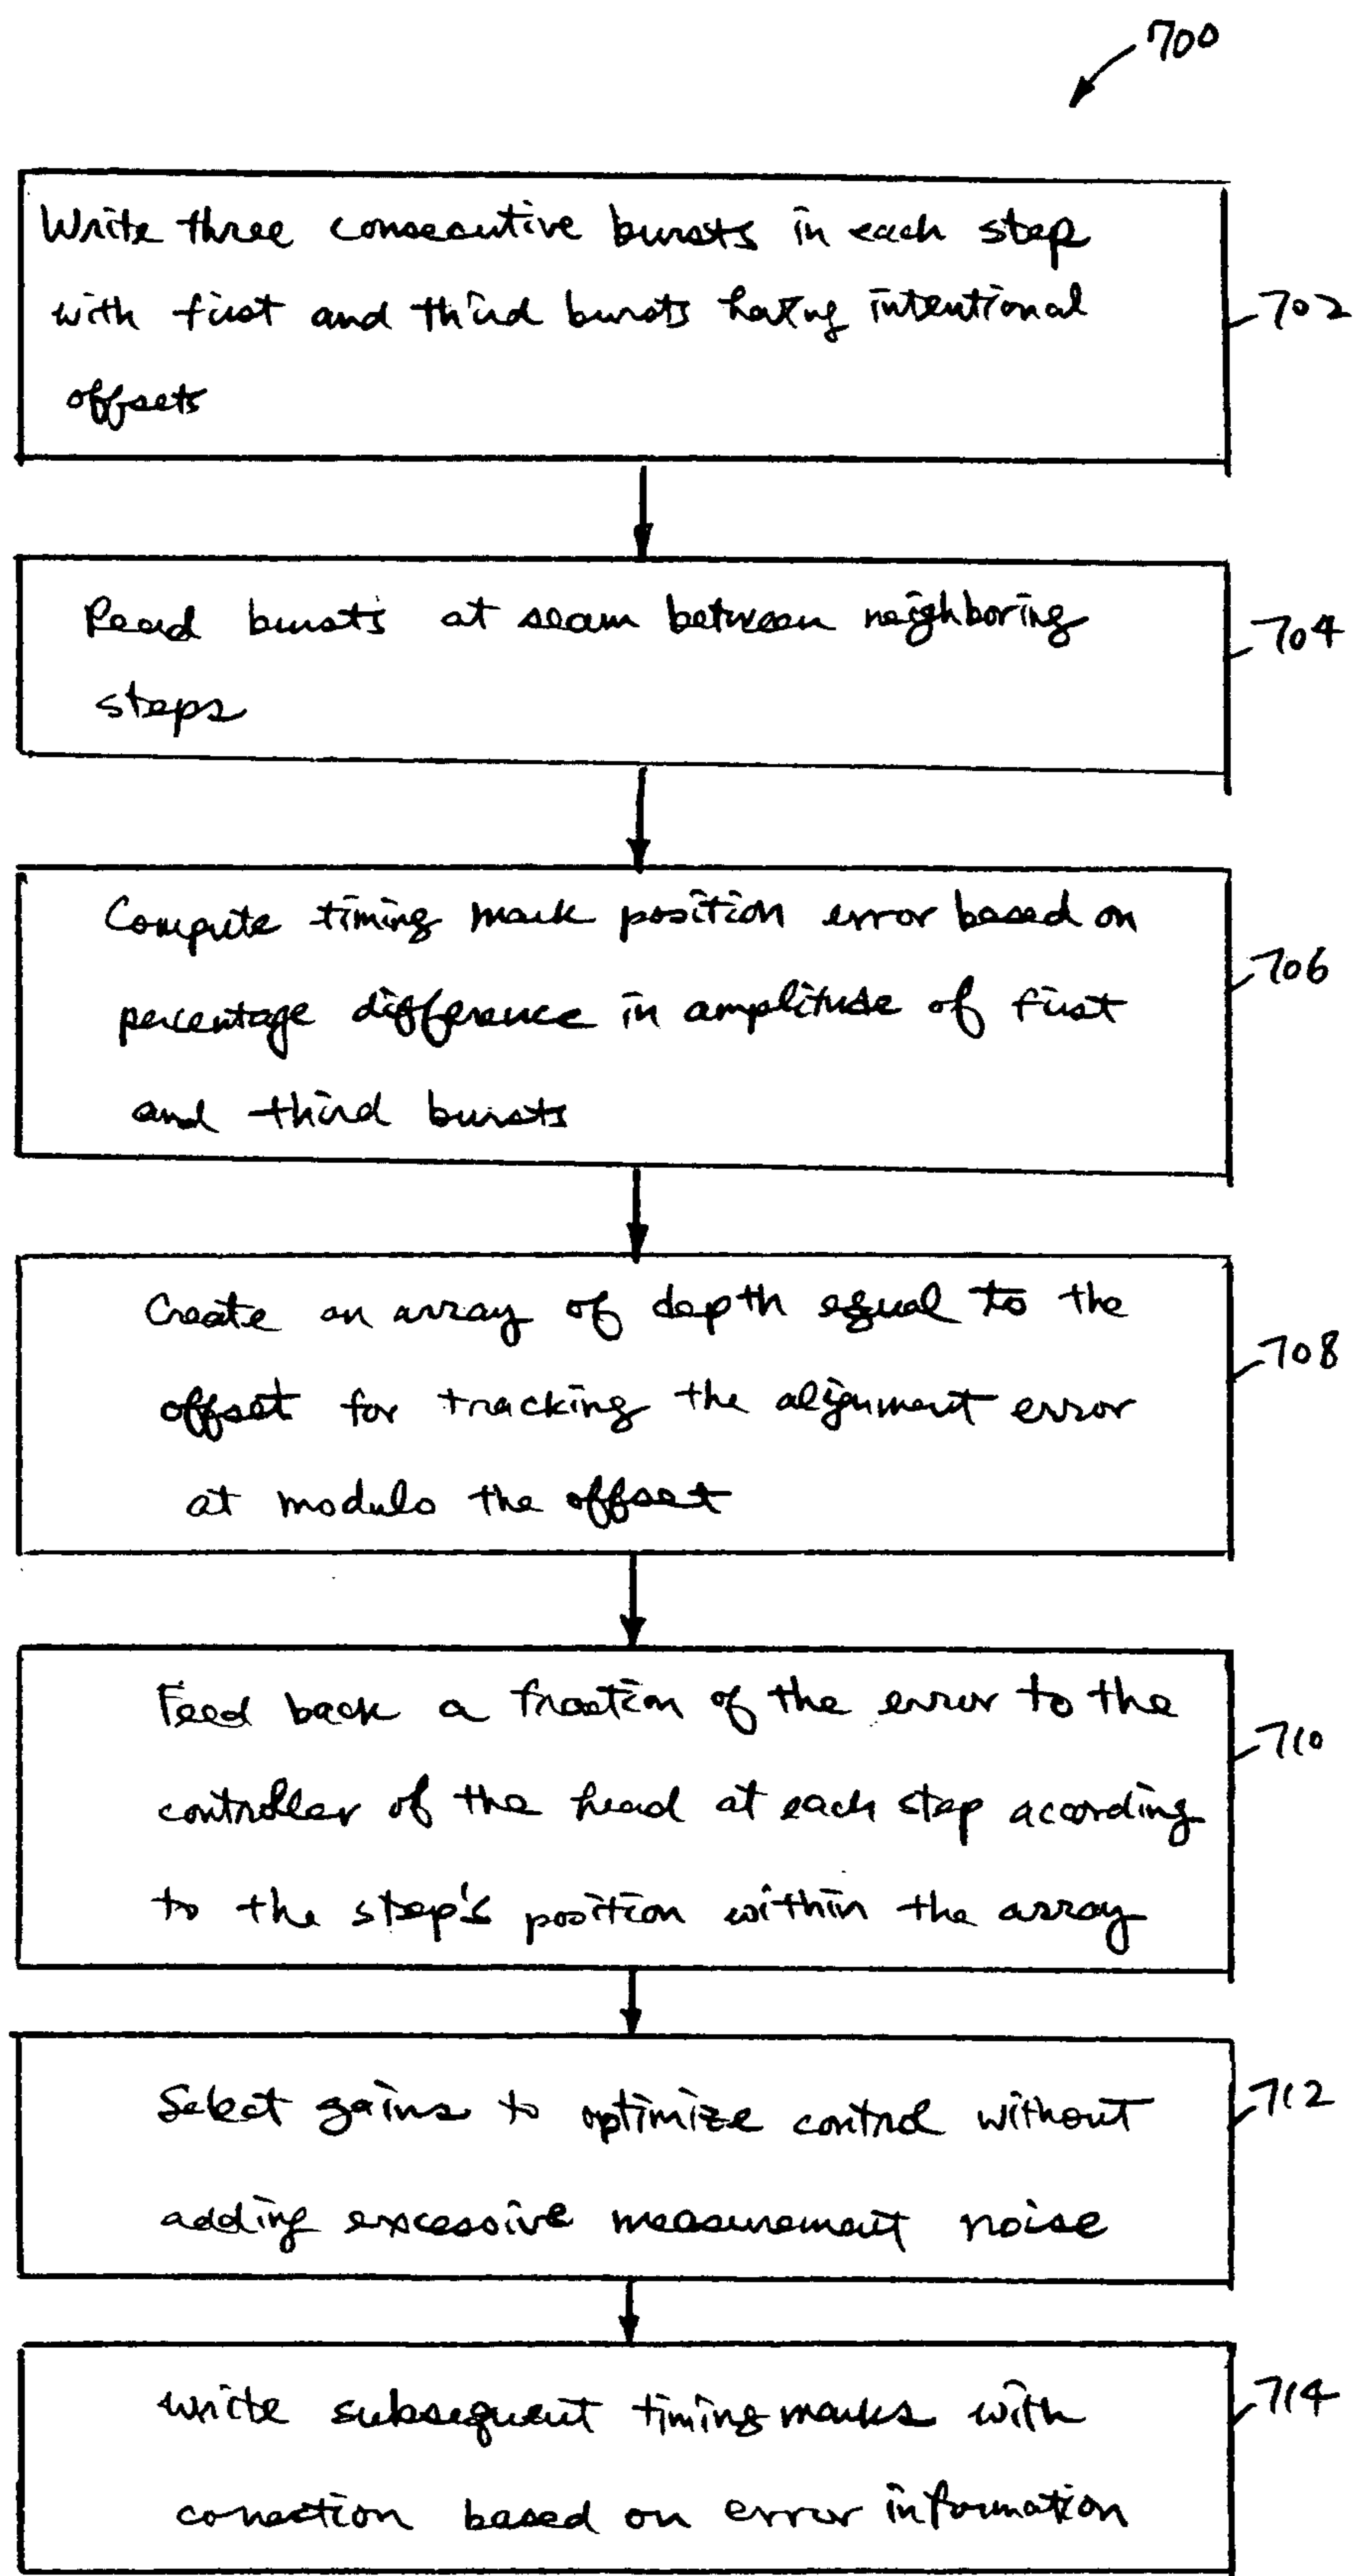 700
Write three consecutive bursts in each step
with first and third bursts having intentional
offsets
702
Read bursts at seam between neighboring
steps
704
Compute timing mark position error based on
percentage difference in amplitude of first
and third bursts
706
Create an array of depth equal to the
offset for tracking the alignment error
at modulo the offset
708
Feed back a fraction of the error to the
controller of the head at each step acording
to the step's position within the array
710
Select gains to optimize control without
adding excessive measurement noise
712
write subsequent timing marks with
correction based on error information
714